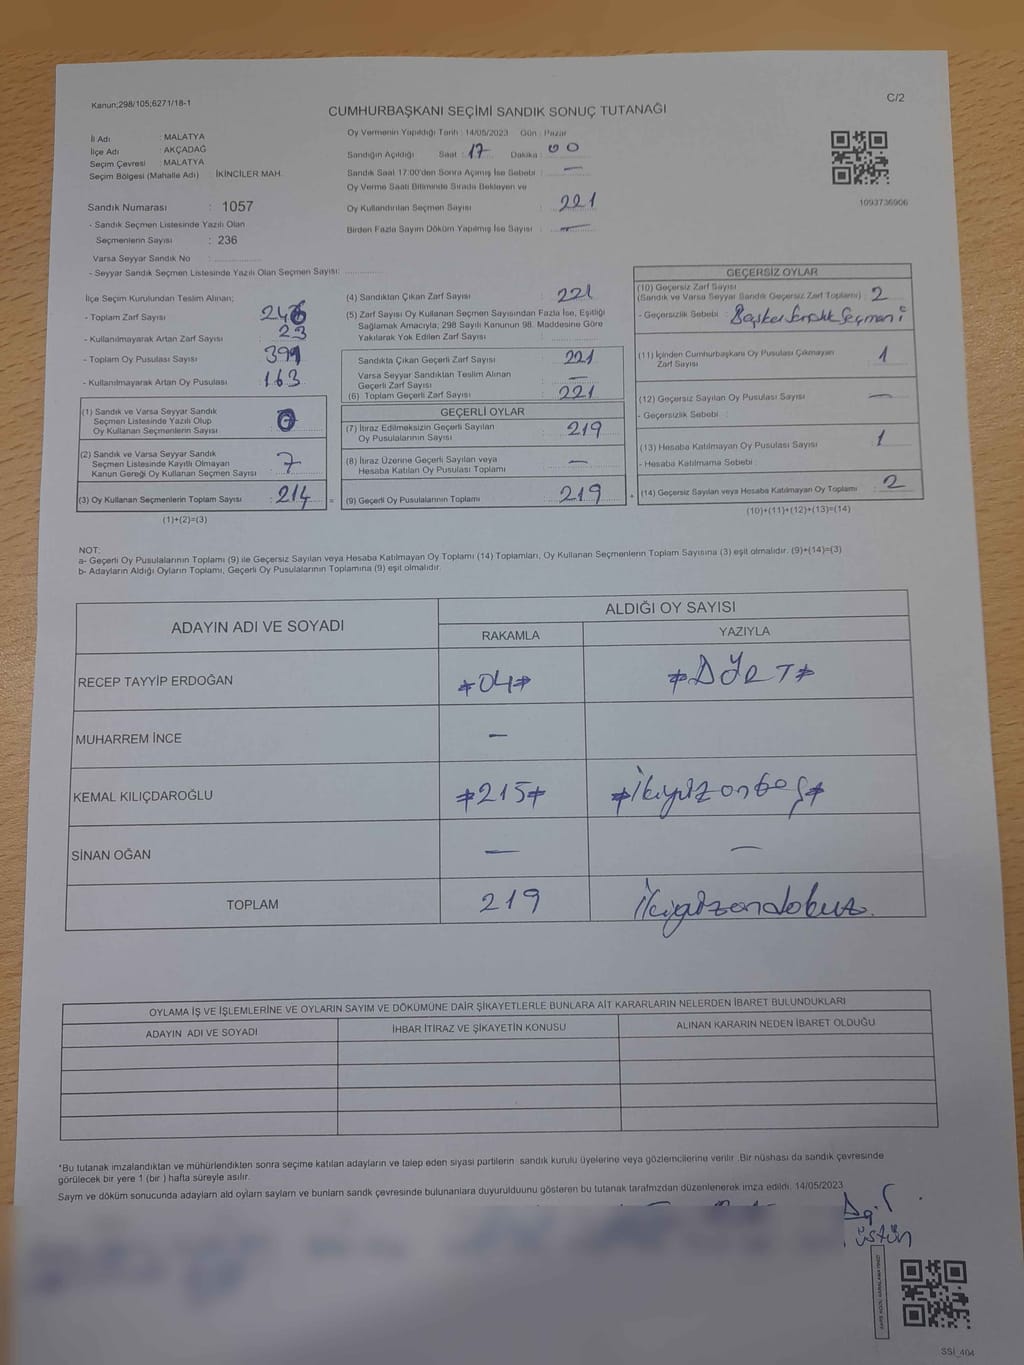 Kanun;298/105;6271/18-1
C/2
CUMHURBAŞKANI SEÇİMİ SANDIK SONUÇ TUTANAĞI
İl Adı : MALATYA
İlçe Adı : AKÇADAĞ
Seçim Çevresi : MALATYA
Seçim Bölgesi (Mahalle Adı) : İKİNCİLER MAH.
Sandık Numarası : 1057
- Sandık Seçmen Listesinde Yazılı Olan
Seçmenlerin Sayısı : 236
Varsa Seyyar Sandık No :
- Seyyar Sandık Seçmen Listesinde Yazılı Olan Seçmen Sayısı:
Oy Vermenin Yapıldığı Tarih : 14/05/2023 Gün : Pazar
Sandığın Açıldığı Saat : 17 Dakika : 00
Sandık Saat 17:00'den Sonra Açımış İse Sebebi : —
Oy Verme Saati Bitiminde Sırada Bekleyen ve
Oy Kullandırılan Seçmen Sayısı : 221
Birden Fazla Sayım Döküm Yapılmış İse Sayısı : —
1093736906
İlçe Seçim Kurulundan Teslim Alınan;
- Toplam Zarf Sayısı : 246
- Kullanılmayarak Artan Zarf Sayısı : 23
- Toplam Oy Pusulası Sayısı : 391
- Kullanılmayarak Artan Oy Pusulası : 163
(1) Sandık ve Varsa Seyyar Sandık
Seçmen Listesinde Yazılı Olup
Oy Kullanan Seçmenlerin Sayısı :
(2) Sandık ve Varsa Seyyar Sandık
Seçmen Listesinde Kayıtlı Olmayan
Kanun Gereği Oy Kullanan Seçmen Sayısı : 7
(3) Oy Kullanan Seçmenlerin Toplam Sayısı : 214
(1)+(2)=(3)
(4) Sandıktan Çıkan Zarf Sayısı : 221
(5) Zarf Sayısı Oy Kullanan Seçmen Sayısından Fazla İse, Eşitliği
Sağlamak Amacıyla; 298 Sayılı Kanunun 98. Maddesine Göre
Yakılarak Yok Edilen Zarf Sayısı :
Sandıkta Çıkan Geçerli Zarf Sayısı : 221
Varsa Seyyar Sandıktan Teslim Alınan
Geçerli Zarf Sayısı : —
(6) Toplam Geçerli Zarf Sayısı : 221
GEÇERLİ OYLAR
(7) İtiraz Edilmeksizin Geçerli Sayılan
Oy Pusulalarının Sayısı : 219
(8) İtiraz Üzerine Geçerli Sayılan veya
Hesaba Katılan Oy Pusulası Toplamı : —
(9) Geçerli Oy Pusulalarının Toplamı : 219
GEÇERSİZ OYLAR
(10) Geçersiz Zarf Sayısı
(Sandık ve Varsa Seyyar Sandık Geçersiz Zarf Toplamı) : 2
- Geçersizlik Sebebi :
(11) İçinden Cumhurbaşkanı Oy Pusulası Çıkmayan
Zarf Sayısı : 1
(12) Geçersiz Sayılan Oy Pusulası Sayısı : —
- Geçersizlik Sebebi :
(13) Hesaba Katılmayan Oy Pusulası Sayısı : 1
- Hesaba Katılmama Sebebi :
(14) Geçersiz Sayılan veya Hesaba Katılmayan Oy Toplamı : 2
(10)+(11)+(12)+(13)=(14)
NOT:
a- Geçerli Oy Pusulalarının Toplamı (9) ile Geçersiz Sayılan veya Hesaba Katılmayan Oy Toplamı (14) Toplamları, Oy Kullanan Seçmenlerin Toplam Sayısına (3) eşit olmalıdır. (9)+(14)=(3)
b- Adayların Aldığı Oyların Toplamı, Geçerli Oy Pusulalarının Toplamına (9) eşit olmalıdır.
ADAYIN ADI VE SOYADI
ALDIĞI OY SAYISI
RAKAMLA YAZIYLA
RECEP TAYYİP ERDOĞAN *04* *DÖRT*
MUHARREM İNCE —
KEMAL KILIÇDAROĞLU *215* *ikiyüzonbeş*
SİNAN OĞAN — —
TOPLAM 219 ikiyüzondokuz.
OYLAMA İŞ VE İŞLEMLERİNE VE OYLARIN SAYIM VE DÖKÜMÜNE DAİR ŞİKAYETLERLE BUNLARA AİT KARARLARIN NELERDEN İBARET BULUNDUKLARI
ADAYIN ADI VE SOYADI İHBAR İTİRAZ VE ŞİKAYETİN KONUSU ALINAN KARARIN NEDEN İBARET OLDUĞU
*Bu tutanak imzalandıktan ve mühürlendikten sonra seçime katılan adayların ve talep eden siyasi partilerin sandık kurulu üyelerine veya gözlemcilerine verilir .Bir nüshası da sandık çevresinde
görülecek bir yere 1 (bir ) hafta süreyle asılır.
Saym ve döküm sonucunda adaylam ald oylarn saylarn ve bunlarn sandk çevresinde bulunanlara duyurulduunu gösteren bu tutanak tarafmzdan düzenlenerek imza edildi. 14/05/2023
üstün
SSİ_404